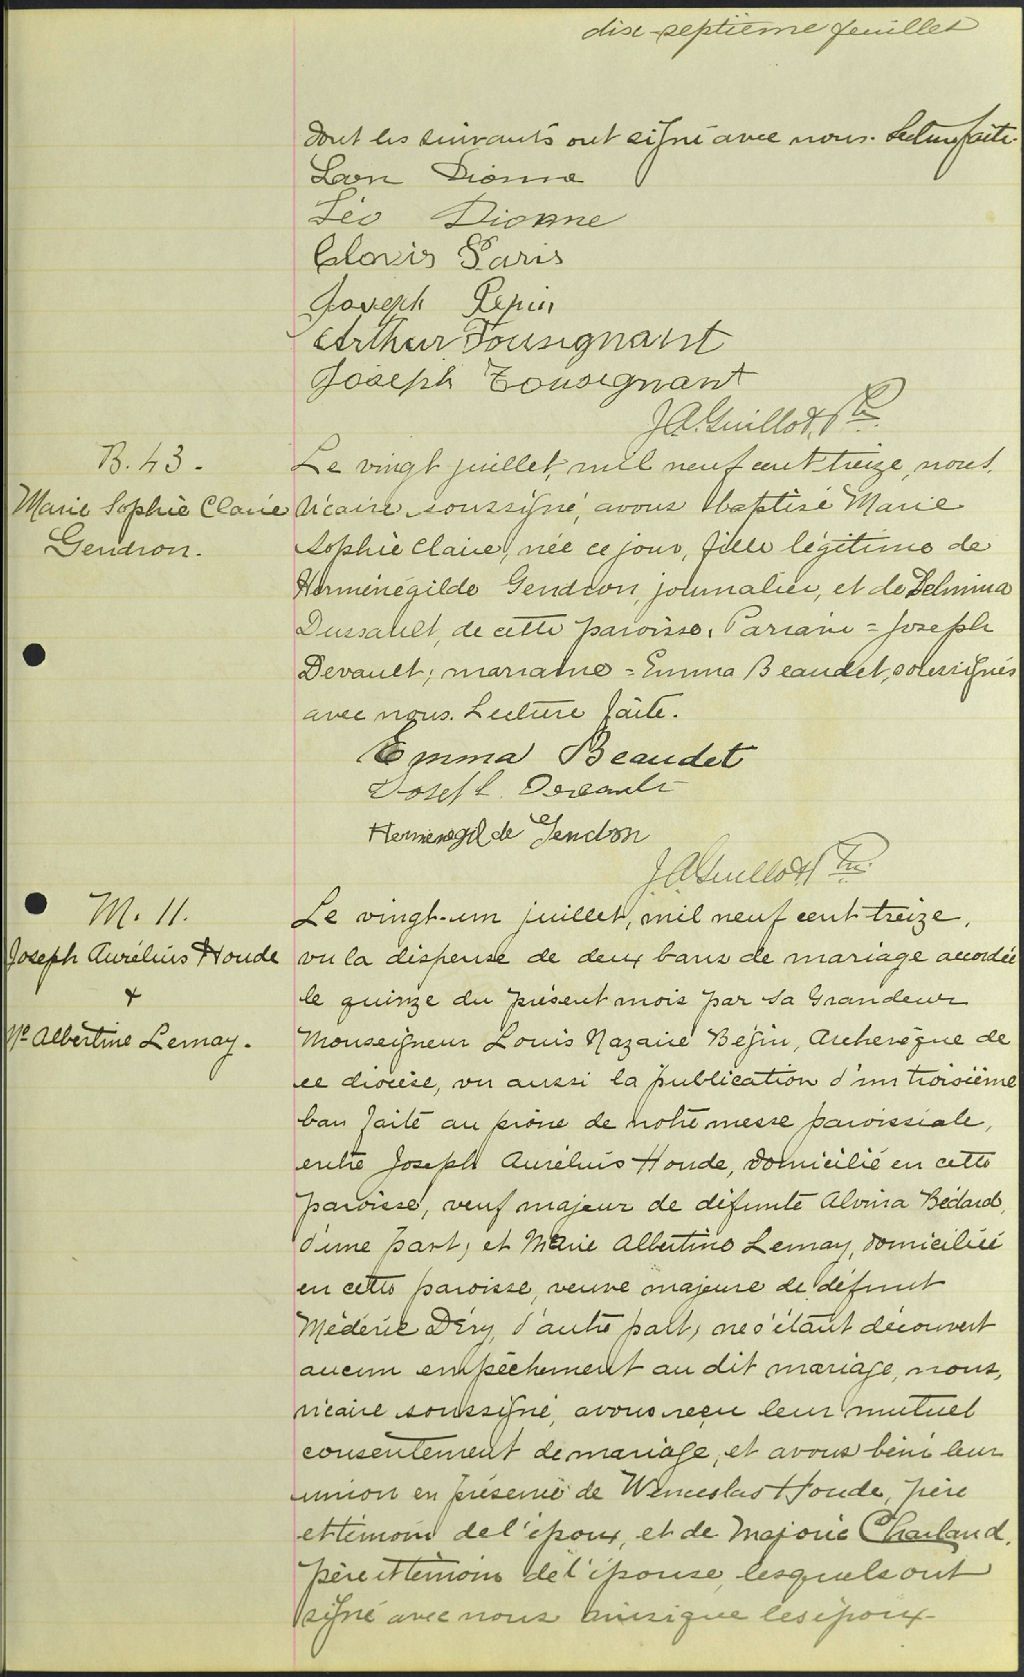 dix-septième feuillet
dont les suivants ont signé avec nous. Lecture faite.
Léon Dionne
Léo Dionne
Clovis Paris
Joseph Pepin
Arthur Tousignant
Joseph Tousignant
J.A. Guillot, Ptre
B. 43.
Marie Sophie Claire
Gendron.
Le vingt juillet, mil neuf cent treize, nous,
vicaire soussigné, avons baptisé Marie
Sophie Claire, née ce jour, fille légitime de
Herménégilde Gendron, journalier, et de Delmina
Dussault, de cette paroisse. Parrain = Joseph
Devault; marraine = Emma Beaudet, soussignés
avec nous. Lecture faite.
Emma Beaudet
Joseph Devault
Hermenegilde Gendron
J.A. Guillot Ptre
M. 11.
Joseph Aurélius Houde
&
Me Albertine Lemay.
Le vingt-un juillet, mil neuf cent treize,
vu la dispense de deux bans de mariage accordée
le quinze du présent mois par Sa Grandeur
Monseigneur Louis Nazaire Bégin, Archevêque de
ce diocèse, vu aussi la publication d'un troisième
ban faite au prône de notre messe paroissiale,
entre Joseph Aurélius Houde, domicilié en cette
paroisse, veuf majeur de défunte Alvina Bédard,
d'une part; et Marie Albertine Lemay, domiciliée
en cette paroisse, veuve majeure de défunt
Médéric Déry, d'autre part; ne s'étant découvert
aucun empêchement au dit mariage, nous,
vicaire soussigné, avons reçu leur mutuel
consentement de mariage, et avons béni leur
union en présence de Wenceslas Houde, père
et témoin de l'époux, et de Majorie Charland,
père et témoin de l'épouse, lesquels ont
signé avec nous ainsi que les époux